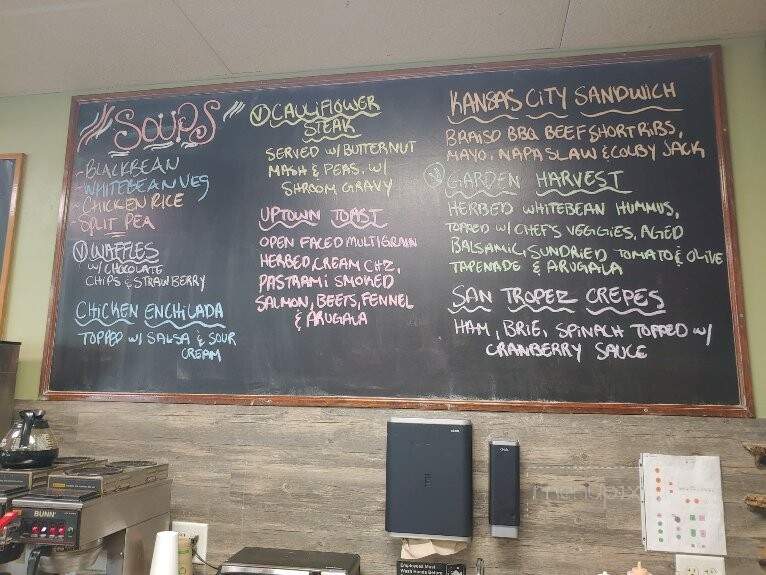 SOUPS
- BLACKBEAN
- WHITEBEAN VEG
- CHICKEN RICE
- SPLIT PEA
Ⓥ WAFFLES
W/ CHOCOLATE
CHIPS & STRAWBERRY
CHICKEN ENCHILADA
TOPPED W/ SALSA & SOUR
CREAM
Ⓥ CAULIFLOWER
STEAK
SERVED W/ BUTTERNUT
MASH & PEAS, W/
SHROOM GRAVY
UPTOWN TOAST
OPEN FACED MULTIGRAIN
HERBED CREAM CHZ,
PASTRAMI SMOKED
SALMON, BEETS, FENNEL
& ARUGALA
KANSAS CITY SANDWICH
BRAISD BBQ BEEF SHORT RIBS,
MAYO, NAPA SLAW & COLBY JACK
Ⓥ GARDEN HARVEST
HERBED WHITEBEAN HUMMUS,
TOPPED W/ CHEFS VEGGIES, AGED
BALSAMIC, SUNDRIED TOMATO & OLIVE
TAPENADE & ARUGALA
SAN TROPEZ CREPES
HAM, BRIE, SPINACH TOPPED W/
CRANBERRY SAUCE
BUNN
Employees Must
Wash Hands Before